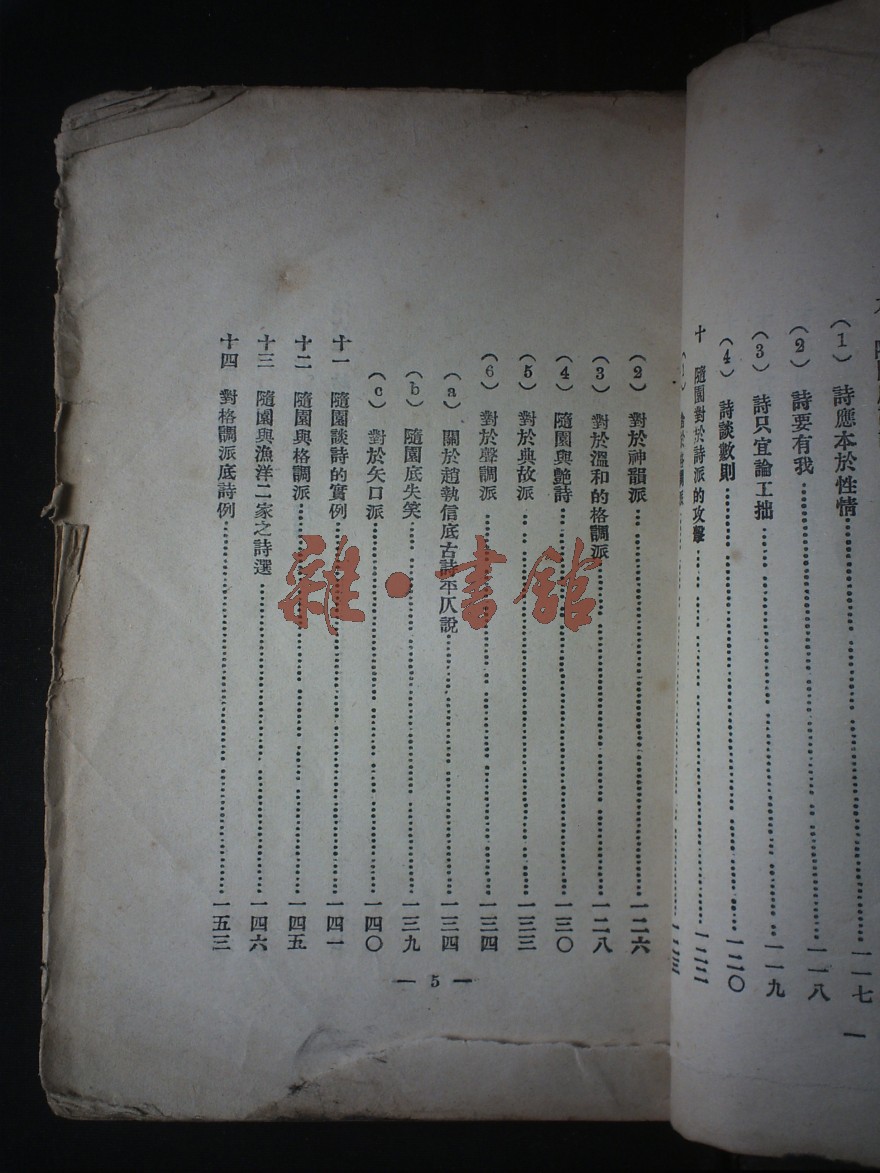 (1) 詩應本於性情……一一七
(2) 詩要有我……一一八
(3) 詩只宜論工拙……一一九
(4) 詩談數則……一二〇
十 隨園對於詩派的攻擊……一二三
(2) 對於神韻派……一二六
(3) 對於溫和的格調派……一二八
(4) 隨園與艷詩……一三〇
(5) 對於典故派……一三三
(6) 對於聲調派……一三四
(a) 關於趙執信底古詩平仄說……一三四
(b) 隨園底失笑……一三九
(c) 對於矢口派……一四〇
十一 隨園談詩的實例……一四一
十二 隨園與格調派……一四五
十三 隨園與漁洋二家之詩選……一四六
十四 對格調派底詩例……一五三
— 5 —
雜·書館